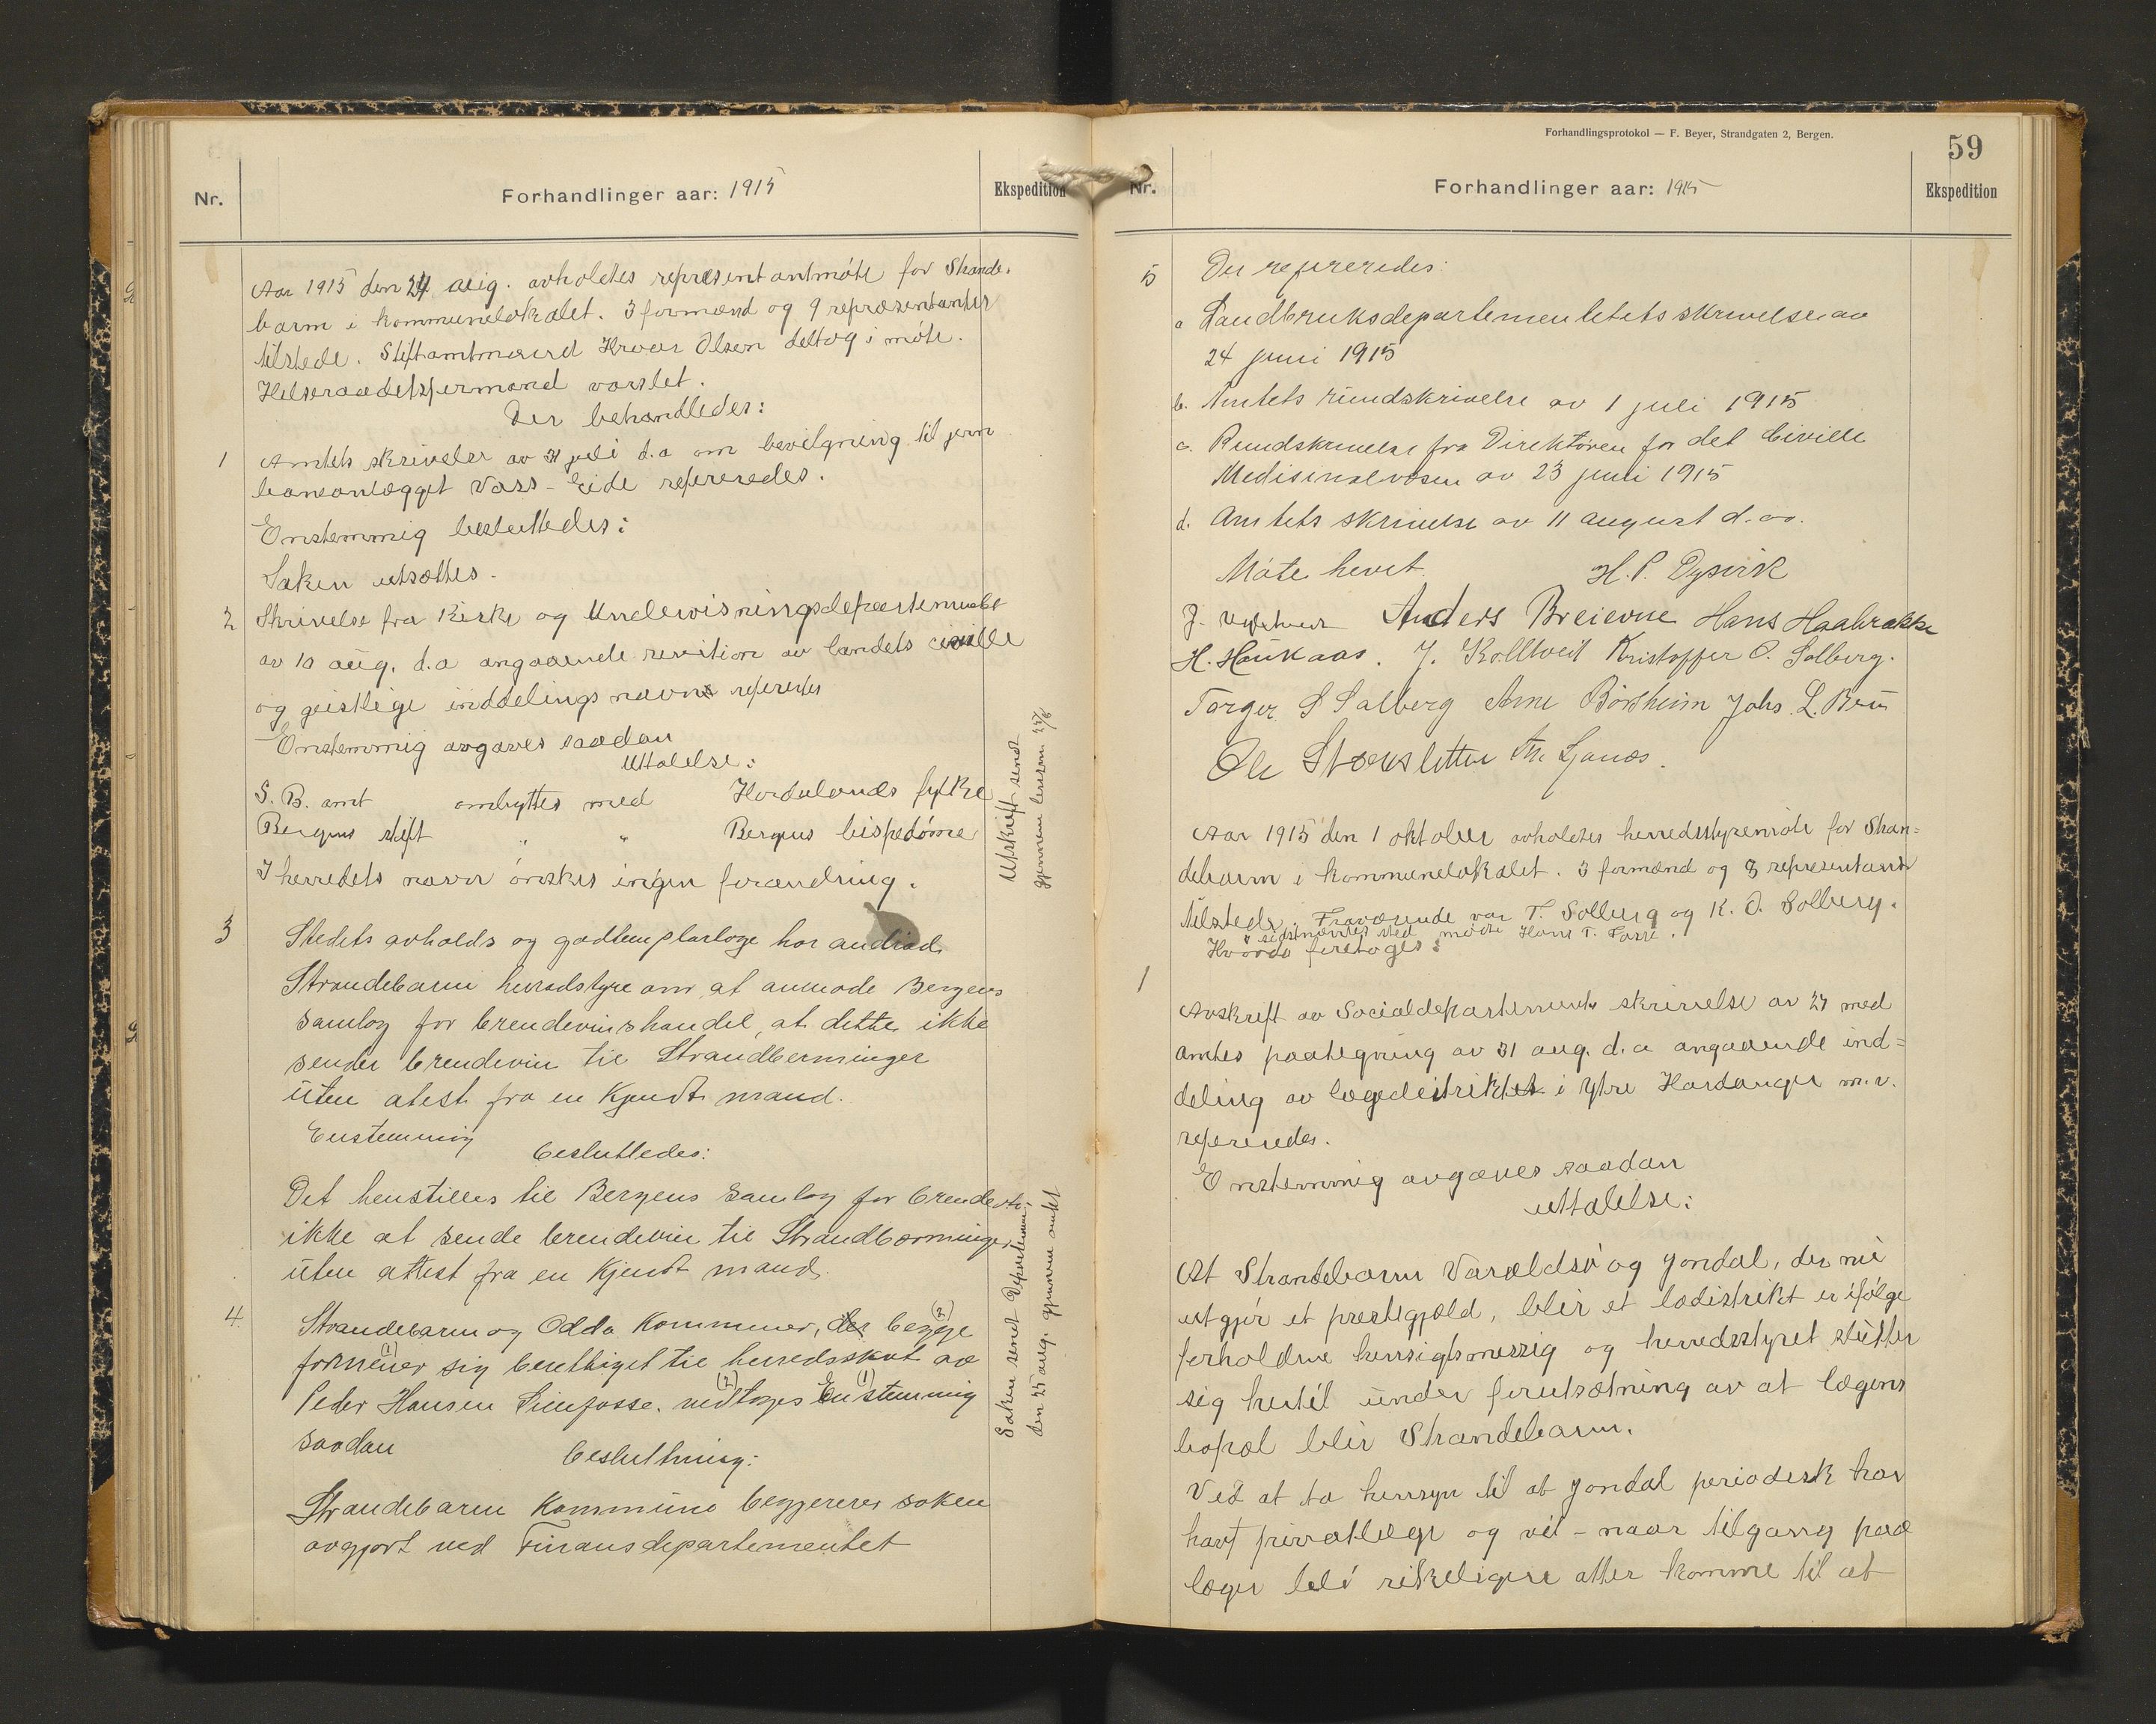 Nr.
Forhandlinger aar: 1915
Ekspedition
Aar 1915 den 24 aug. avholdtes representantmöte for Strande-
barm i kommunelokalet. 3 formænd og 9 repræsentanter
tilstede. Stiftamtmænd Hroar Olsen deltog i möte.
Helseraadetsformand varslet.
Der behandledes:
1 Amtets skrivelse av 31 juli d.a om bevilgning til jern
baneanlægget Vass-Eide refereredes.
Enstemmig besluttedes:
Saken utsættes.
2 Skrivelse fra Kirke og Undervisningsdepartementet
av 10 aug. d.a angaaende revition av landets civille
og geistlige inddelings navne refereredes
Enstemmig avgaves saadan
uttalelse:
S. B. amt ombyttes med Hordalands fylke
Bergens stift " " Bergens bispedöme
I herredets navn önskes ingen forandring.
Utskrift sendt
gjennem lensm 25/8
3 Stedets avholds og godtemplarloge har andrad
Strandebarm herredstyre om at anmode Bergens
samlag for brendevinshandel, at dette ikke
sender brendevin til Strandberminger
uten atest fra en Kjendt mand.
Enstemmig
besluttedes:
Det henstilles til Bergens Samlag for brendevi-
ikke at sende brendevin til Strandbarminger
uten attest fra en Kjendt mand.
4 Strandebarm og Odda Kommuner, der begge (2)
formener (1) sig berettiget til herredsskat av
Peder Hansen Linfosse. vedtoges (2) Enstemmig (1)
saadan
beslutning:
Strandebarm Kommune begjererer saken
avgjort ved Finansdepartementet
Saken sendt Departemen-
den 25 aug. gjennem amtet
Forhandlingsprotokol — F. Beyer, Strandgaten 2, Bergen.
59
Nr.
Forhandlinger aar: 1915
Ekspedition
5 Der refereredes:
a Landbruksdepartementetets skrivelse av
24 juni 1915
b. Amtets rundskrivelse av 1 juli 1915
c. Rundskrivelse fra Direktören for det Civille
Medisinalvæsen av 23 juni 1915
d. Amtets skrivelse av 11 august d.aa.
Möte hevet. H. P. Dysvik
J. Anders Breievne Hans Haabrække
H. Haukaas. J. Kolltveit Kristoffer O. Solberg.
Torger S Salberg Arne Börsheim Johs. L. Bru
Ole Stoksletten
Aar 1915 den 1 oktober avholdtes herredsstyremöte for Stran=
debarm i kommunelokalet. 3 formænd og 8 representanter
tilstede. Fraværende var T. Solberg og K. O. Solberg.
I sidstnævntes sted mötte Hans T. Fosse.
Hvorda foretoges:
1
Avskrift av Socialdepartements skrivelse av 27 med
amtes paategning av 31 aug. d.a angaaende ind=
deling av lægedistriktet i Ytre Hardanger m.v.
refereredes.
Enstemmig avgaves saadan
uttalelse:
At Strandebarm Varaldsö og Jondal, der nu
utgjör et prestegjæld, blir et lædistrikt er ifölge
forholdene hensigtsmessig og herredsstyret slutter
sig hertil under forutsætning av at lægens
bopæl blir Strandebarm.
Ved at ta hensyn til at Jondal periodisk har
havt privatlæge og vil – naar tilgang paa
læger bli rikeligere atter komme til at